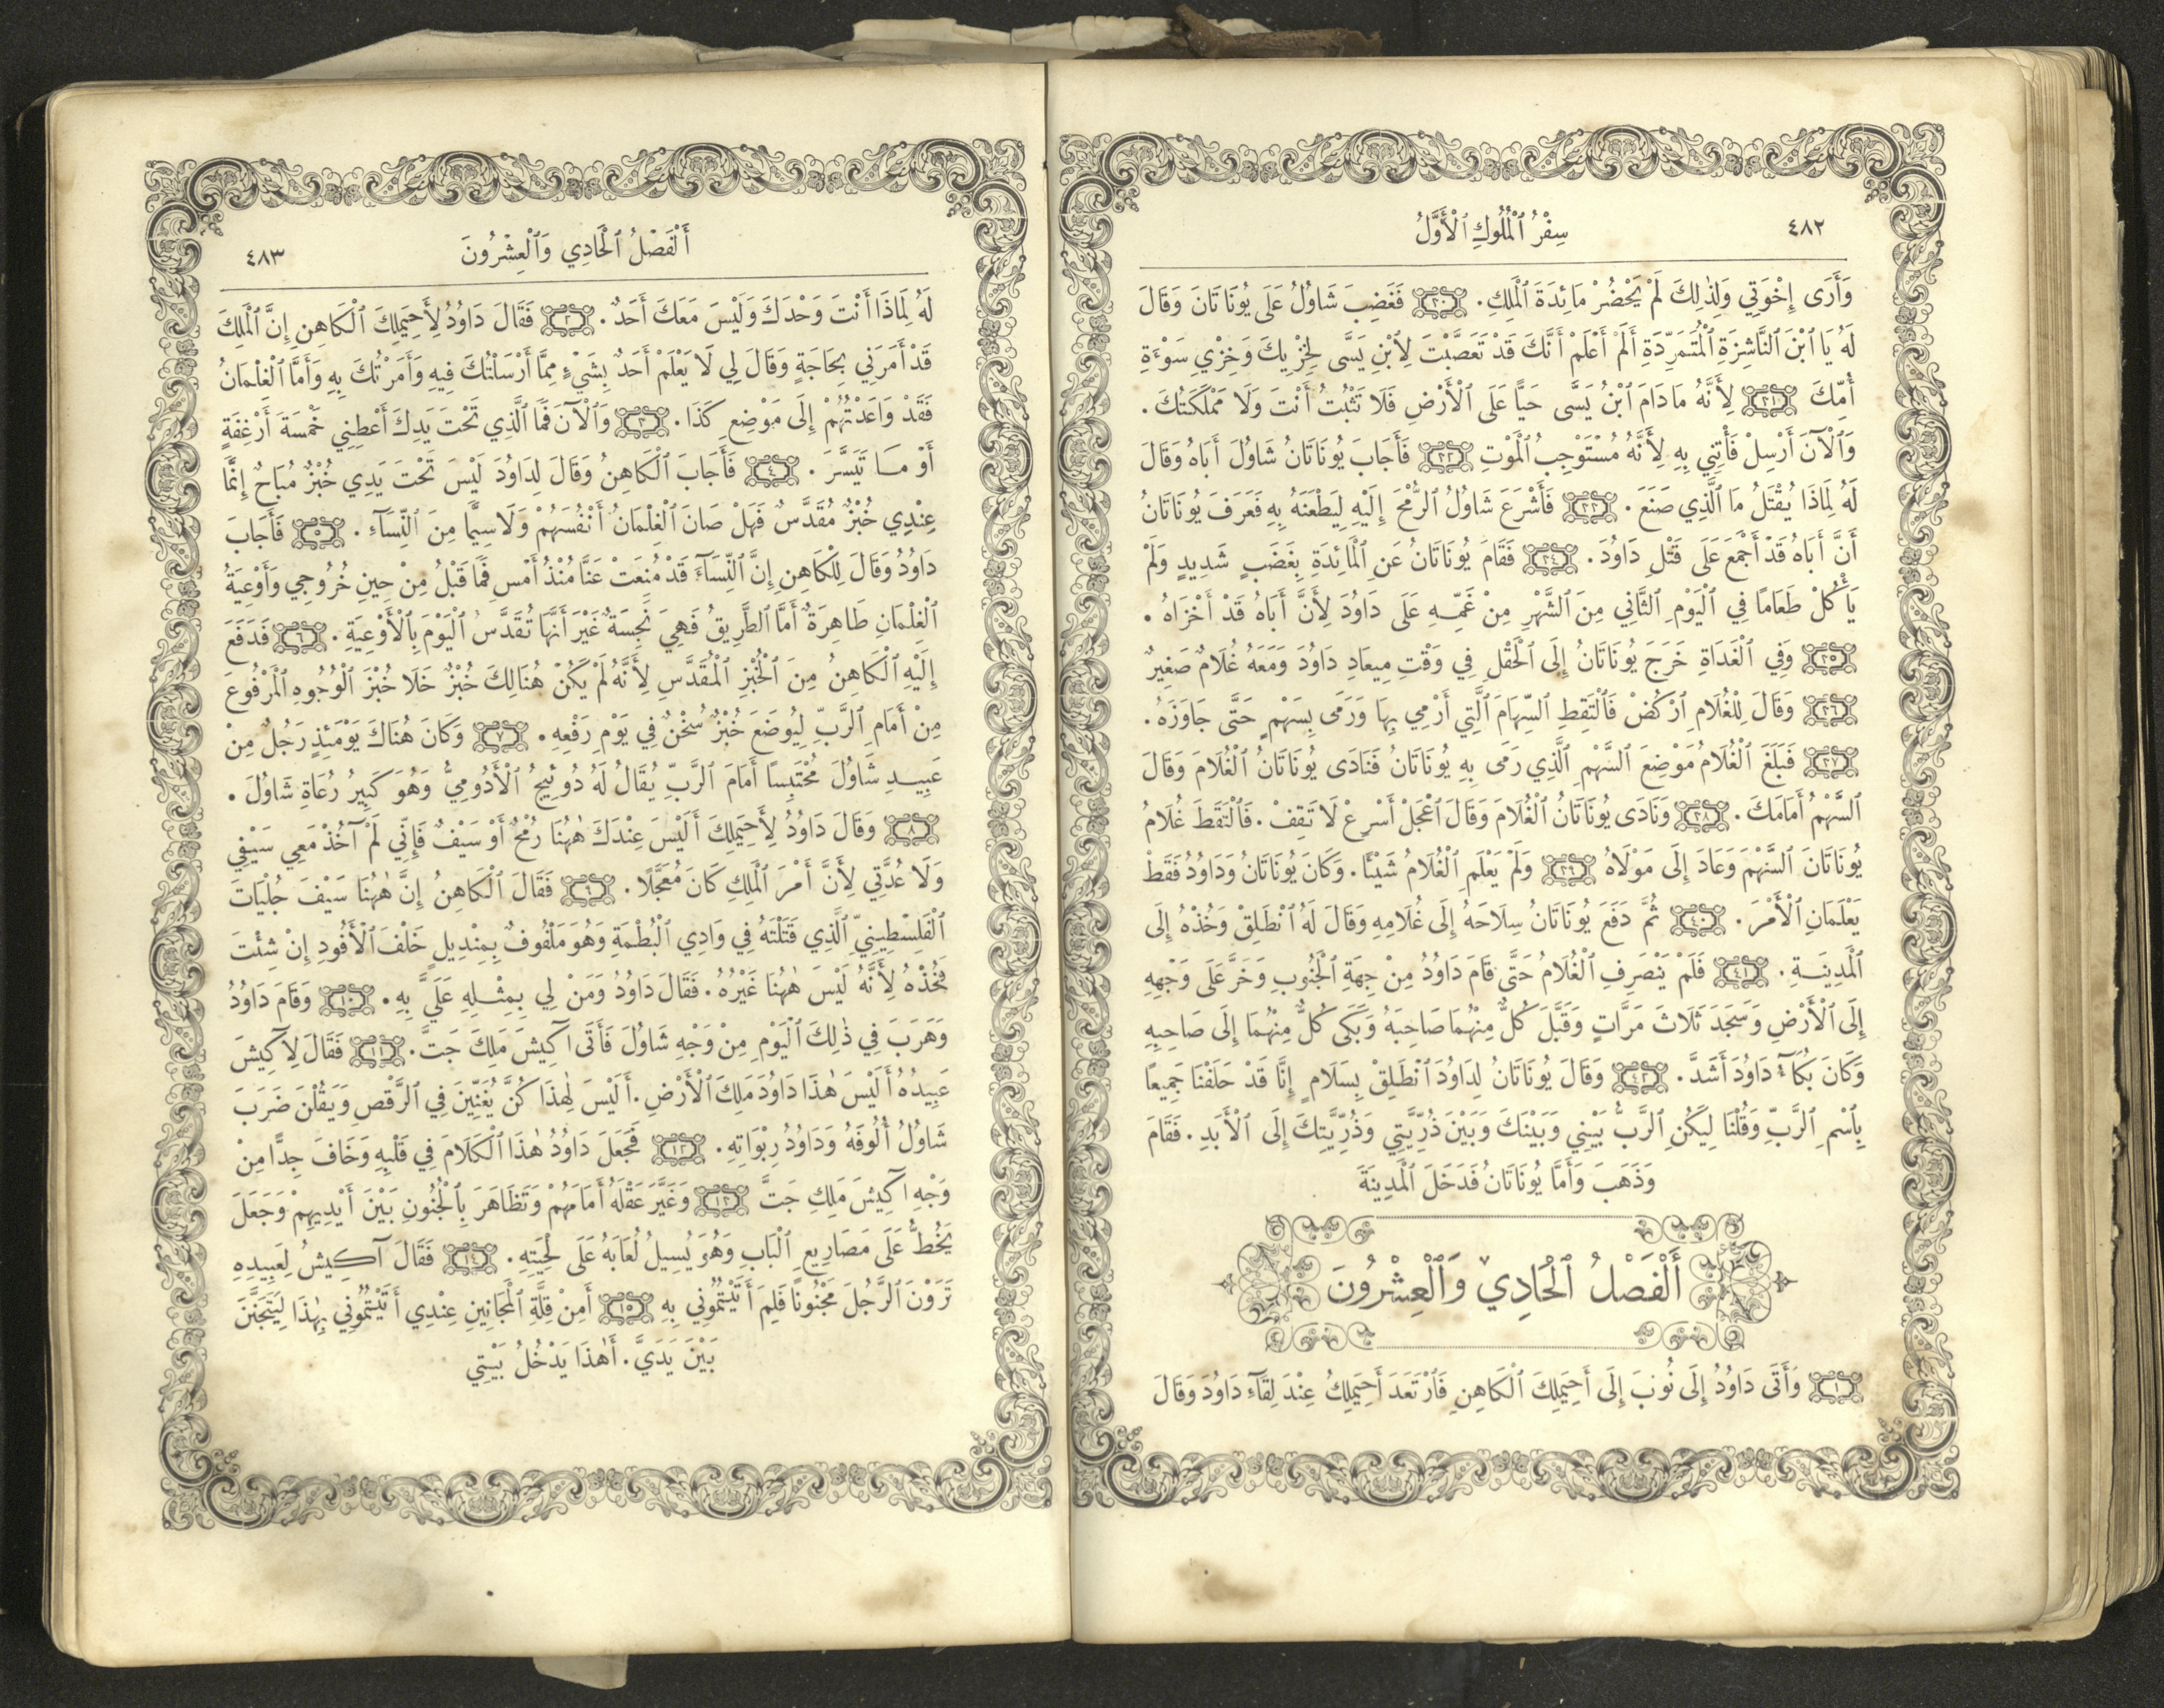 ٤٨٢
سِفْرُ ٱلْمُلُوكِ ٱلْأَوَّلُ
وَأَرَى إِخْوَتِي وَلِذٰلِكَ لَمْ يَحْضُرْ مَائِدَةَ ٱلْمَلِكِ. ٣٠ فَغَضِبَ شَاوُلُ عَلَى يُونَاتَانَ وَقَالَ
لَهُ يَا ٱبْنَ ٱلنَّاشِزَةِ ٱلْمُتَمَرِّدَةِ أَلَمْ أَعْلَمْ أَنَّكَ قَدْ تَعَصَّبْتَ لِٱبْنِ يَسَّى لِخِزْيِكَ وَخِزْيِ سَوْءَةِ
أُمِّكَ ٣١ لِأَنَّهُ مَا دَامَ ٱبْنُ يَسَّى حَيًّا عَلَى ٱلْأَرْضِ فَلَا تَثْبُتُ أَنْتَ وَلَا مَمْلَكَتُكَ.
وَٱلْآنَ أَرْسِلْ فَأْتِنِي بِهِ لِأَنَّهُ مُسْتَوْجِبُ ٱلْمَوْتِ ٣٢ فَأَجَابَ يُونَاتَانُ شَاوُلَ أَبَاهُ وَقَالَ
لَهُ لِمَاذَا يُقْتَلُ مَا ٱلَّذِي صَنَعَ. ٣٣ فَأَشْرَعَ شَاوُلُ ٱلرُّمْحَ إِلَيْهِ لِيَطْعَنَهُ بِهِ فَعَرَفَ يُونَاتَانُ
أَنَّ أَبَاهُ قَدْ أَجْمَعَ عَلَى قَتْلِ دَاوُدَ. ٣٤ فَقَامَ يُونَاتَانُ عَنِ ٱلْمَائِدَةِ بِغَضَبٍ شَدِيدٍ وَلَمْ
يَأْكُلْ طَعَامًا فِي ٱلْيَوْمِ ٱلثَّانِي مِنَ ٱلشَّهْرِ مِنْ غَمِّهِ عَلَى دَاوُدَ لِأَنَّ أَبَاهُ قَدْ أَخْزَاهُ.
٣٥ وَفِي ٱلْغَدَاةِ خَرَجَ يُونَاتَانُ إِلَى ٱلْحَقْلِ فِي وَقْتِ مِيعَادِ دَاوُدَ وَمَعَهُ غُلَامٌ صَغِيرٌ
٣٦ وَقَالَ لِلْغُلَامِ ٱرْكُضْ فَٱلْتَقِطِ ٱلسِّهَامَ ٱلَّتِي أَرْمِي بِهَا وَرَمَى بِسَهْمٍ حَتَّى جَاوَزَهُ.
٣٧ فَبَلَغَ ٱلْغُلَامُ مَوْضِعَ ٱلسَّهْمِ ٱلَّذِي رَمَى بِهِ يُونَاتَانُ فَنَادَى يُونَاتَانُ ٱلْغُلَامَ وَقَالَ
ٱلسَّهْمُ أَمَامَكَ. ٣٨ وَنَادَى يُونَاتَانُ ٱلْغُلَامَ وَقَالَ ٱعْجَلْ أَسْرِعْ لَا تَقِفْ. فَٱلْتَقَطَ غُلَامُ
يُونَاتَانَ ٱلسَّهْمَ وَعَادَ إِلَى مَوْلَاهُ ٣٩ وَلَمْ يَعْلَمِ ٱلْغُلَامُ شَيْئًا. وَكَانَ يُونَاتَانُ وَدَاوُدُ فَقَطْ
يَعْلَمَانِ ٱلْأَمْرَ. ٤٠ ثُمَّ دَفَعَ يُونَاتَانُ سِلَاحَهُ إِلَى غُلَامِهِ وَقَالَ لَهُ ٱنْطَلِقْ وَخُذْهُ إِلَى
ٱلْمَدِينَةِ. ٤١ فَلَمْ يَنْصَرِفِ ٱلْغُلَامُ حَتَّى قَامَ دَاوُدُ مِنْ جِهَةِ ٱلْجَنُوبِ وَخَرَّ عَلَى وَجْهِهِ
إِلَى ٱلْأَرْضِ وَسَجَدَ ثَلَاثَ مَرَّاتٍ وَقَبَّلَ كُلٌّ مِنْهُمَا صَاحِبَهُ وَبَكَى كُلٌّ مِنْهُمَا إِلَى صَاحِبِهِ
وَكَانَ بُكَآءُ دَاوُدَ أَشَدَّ. ٤٢ وَقَالَ يُونَاتَانُ لِدَاوُدَ ٱنْطَلِقْ بِسَلَامٍ إِنَّا قَدْ حَلَفْنَا جَمِيعًا
بِٱسْمِ ٱلرَّبِّ وَقُلْنَا لِيَكُنِ ٱلرَّبُّ بَيْنِي وَبَيْنَكَ وَبَيْنَ ذُرِّيَّتِي وَذُرِّيَّتِكَ إِلَى ٱلْأَبَدِ. فَقَامَ
وَذَهَبَ وَأَمَّا يُونَاتَانُ فَدَخَلَ ٱلْمَدِينَةَ
أَلْفَصْلُ ٱلْحَادِي وَٱلْعِشْرُونَ
١ وَأَتَى دَاوُدُ إِلَى نُوبَ إِلَى أَحِيمَلِكَ ٱلْكَاهِنِ فَٱرْتَعَدَ أَحِيمَلِكُ عِنْدَ لِقَآءِ دَاوُدَ وَقَالَ
أَلْفَصْلُ ٱلْحَادِي وَٱلْعِشْرُونَ
٤٨٣
لَهُ لِمَاذَا أَنْتَ وَحْدَكَ وَلَيْسَ مَعَكَ أَحَدٌ. ٢ فَقَالَ دَاوُدُ لِأَحِيمَلِكَ ٱلْكَاهِنِ إِنَّ ٱلْمَلِكَ
قَدْ أَمَرَنِي بِحَاجَةٍ وَقَالَ لِي لَا يَعْلَمْ أَحَدٌ بِشَيْءٍ مِمَّا أَرْسَلْتُكَ فِيهِ وَأَمَرْتُكَ بِهِ وَأَمَّا ٱلْغِلْمَانُ
فَقَدْ وَاعَدْتُهُمْ إِلَى مَوْضِعِ كَذَا. ٣ وَٱلْآنَ فَمَا ٱلَّذِي تَحْتَ يَدِكَ أَعْطِنِي خَمْسَةَ أَرْغِفَةٍ
أَوْ مَا تَيَسَّرَ. ٤ فَأَجَابَ ٱلْكَاهِنُ وَقَالَ لِدَاوُدَ لَيْسَ تَحْتَ يَدِي خُبْزٌ مُبَاحٌ إِنَّمَا
عِنْدِي خُبْزٌ مُقَدَّسٌ فَهَلْ صَانَ ٱلْغِلْمَانُ أَنْفُسَهُمْ وَلَا سِيَّمَا مِنَ ٱلنِّسَآءِ. ٥ فَأَجَابَ
دَاوُدُ وَقَالَ لِلْكَاهِنِ إِنَّ ٱلنِّسَآءَ قَدْ مُنِعَتْ عَنَّا مُنْذُ أَمْسِ فَمَا قَبْلُ مِنْ حِينِ خُرُوجِي وَأَوْعِيَةُ
ٱلْغِلْمَانِ طَاهِرَةٌ أَمَّا ٱلطَّرِيقُ فَهِيَ نَجِسَةٌ غَيْرَ أَنَّهَا تُقَدَّسُ ٱلْيَوْمَ بِٱلْأَوْعِيَةِ. ٦ فَدَفَعَ
إِلَيْهِ ٱلْكَاهِنُ مِنَ ٱلْخُبْزِ ٱلْمُقَدَّسِ لِأَنَّهُ لَمْ يَكُنْ هُنَالِكَ خُبْزٌ خَلَا خُبْزَ ٱلْوُجُوهِ ٱلْمَرْفُوعَ
مِنْ أَمَامِ ٱلرَّبِّ لِيُوضَعَ خُبْزٌ سُخْنٌ فِي يَوْمِ رَفْعِهِ. ٧ وَكَانَ هُنَاكَ يَوْمَئِذٍ رَجُلٌ مِنْ
عَبِيدِ شَاوُلَ مُحْتَبِسًا أَمَامَ ٱلرَّبِّ يُقَالُ لَهُ دُوئِيجُ ٱلْأَدُومِيُّ وَهُوَ كَبِيرُ رُعَاةِ شَاوُلَ.
٨ وَقَالَ دَاوُدُ لِأَحِيمَلِكَ أَلَيْسَ عِنْدَكَ هٰهُنَا رُمْحٌ أَوْ سَيْفٌ فَإِنِّي لَمْ آخُذْ مَعِي سَيْفِي
وَلَا عُدَّتِي لِأَنَّ أَمْرَ ٱلْمَلِكِ كَانَ مُعَجَّلًا. ٩ فَقَالَ ٱلْكَاهِنُ إِنَّ هٰهُنَا سَيْفَ جُلْيَاتَ
ٱلْفَلِسْطِينِيِّ ٱلَّذِي قَتَلْتَهُ فِي وَادِي ٱلْبُطْمَةِ وَهُوَ مَلْفُوفٌ بِمِنْدِيلٍ خَلْفَ ٱلْأَفُودِ إِنْ شِئْتَ
فَخُذْهُ لِأَنَّهُ لَيْسَ هٰهُنَا غَيْرُهُ. فَقَالَ دَاوُدُ وَمَنْ لِي بِمِثْلِهِ عَلَيَّ بِهِ. ١٠ وَقَامَ دَاوُدُ
وَهَرَبَ فِي ذٰلِكَ ٱلْيَوْمِ مِنْ وَجْهِ شَاوُلَ فَأَتَى آكِيشَ مَلِكَ جَتَّ. ١١ فَقَالَ لِآكِيشَ
عَبِيدُهُ أَلَيْسَ هٰذَا دَاوُدَ مَلِكَ ٱلْأَرْضِ. أَلَيْسَ لِهٰذَا كُنَّ يُغَنِّينَ فِي ٱلرَّقْصِ وَيَقُلْنَ ضَرَبَ
شَاوُلُ أُلُوفَهُ وَدَاوُدُ رِبْوَاتِهِ. ١٢ فَجَعَلَ دَاوُدُ هٰذَا ٱلْكَلَامَ فِي قَلْبِهِ وَخَافَ جِدًّا مِنْ
وَجْهِ آكِيشَ مَلِكِ جَتَّ ١٣ وَغَيَّرَ عَقْلَهُ أَمَامَهُمْ وَتَظَاهَرَ بِٱلْجُنُونِ بَيْنَ أَيْدِيهِمْ وَجَعَلَ
يَخُطُّ عَلَى مَصَارِيعِ ٱلْبَابِ وَهُوَ يُسِيلُ لُعَابَهُ عَلَى لِحْيَتِهِ. ١٤ فَقَالَ آكِيشُ لِعَبِيدِهِ
تَرَوْنَ ٱلرَّجُلَ مَجْنُونًا فَلِمَ أَتَيْتُمُونِي بِهِ ١٥ أَمِنْ قِلَّةِ ٱلْمَجَانِينِ عِنْدِي أَتَيْتُمُونِي بِهٰذَا لِيَتَجَنَّنَ
بَيْنَ يَدَيَّ. أَهٰذَا يَدْخُلُ بَيْتِي